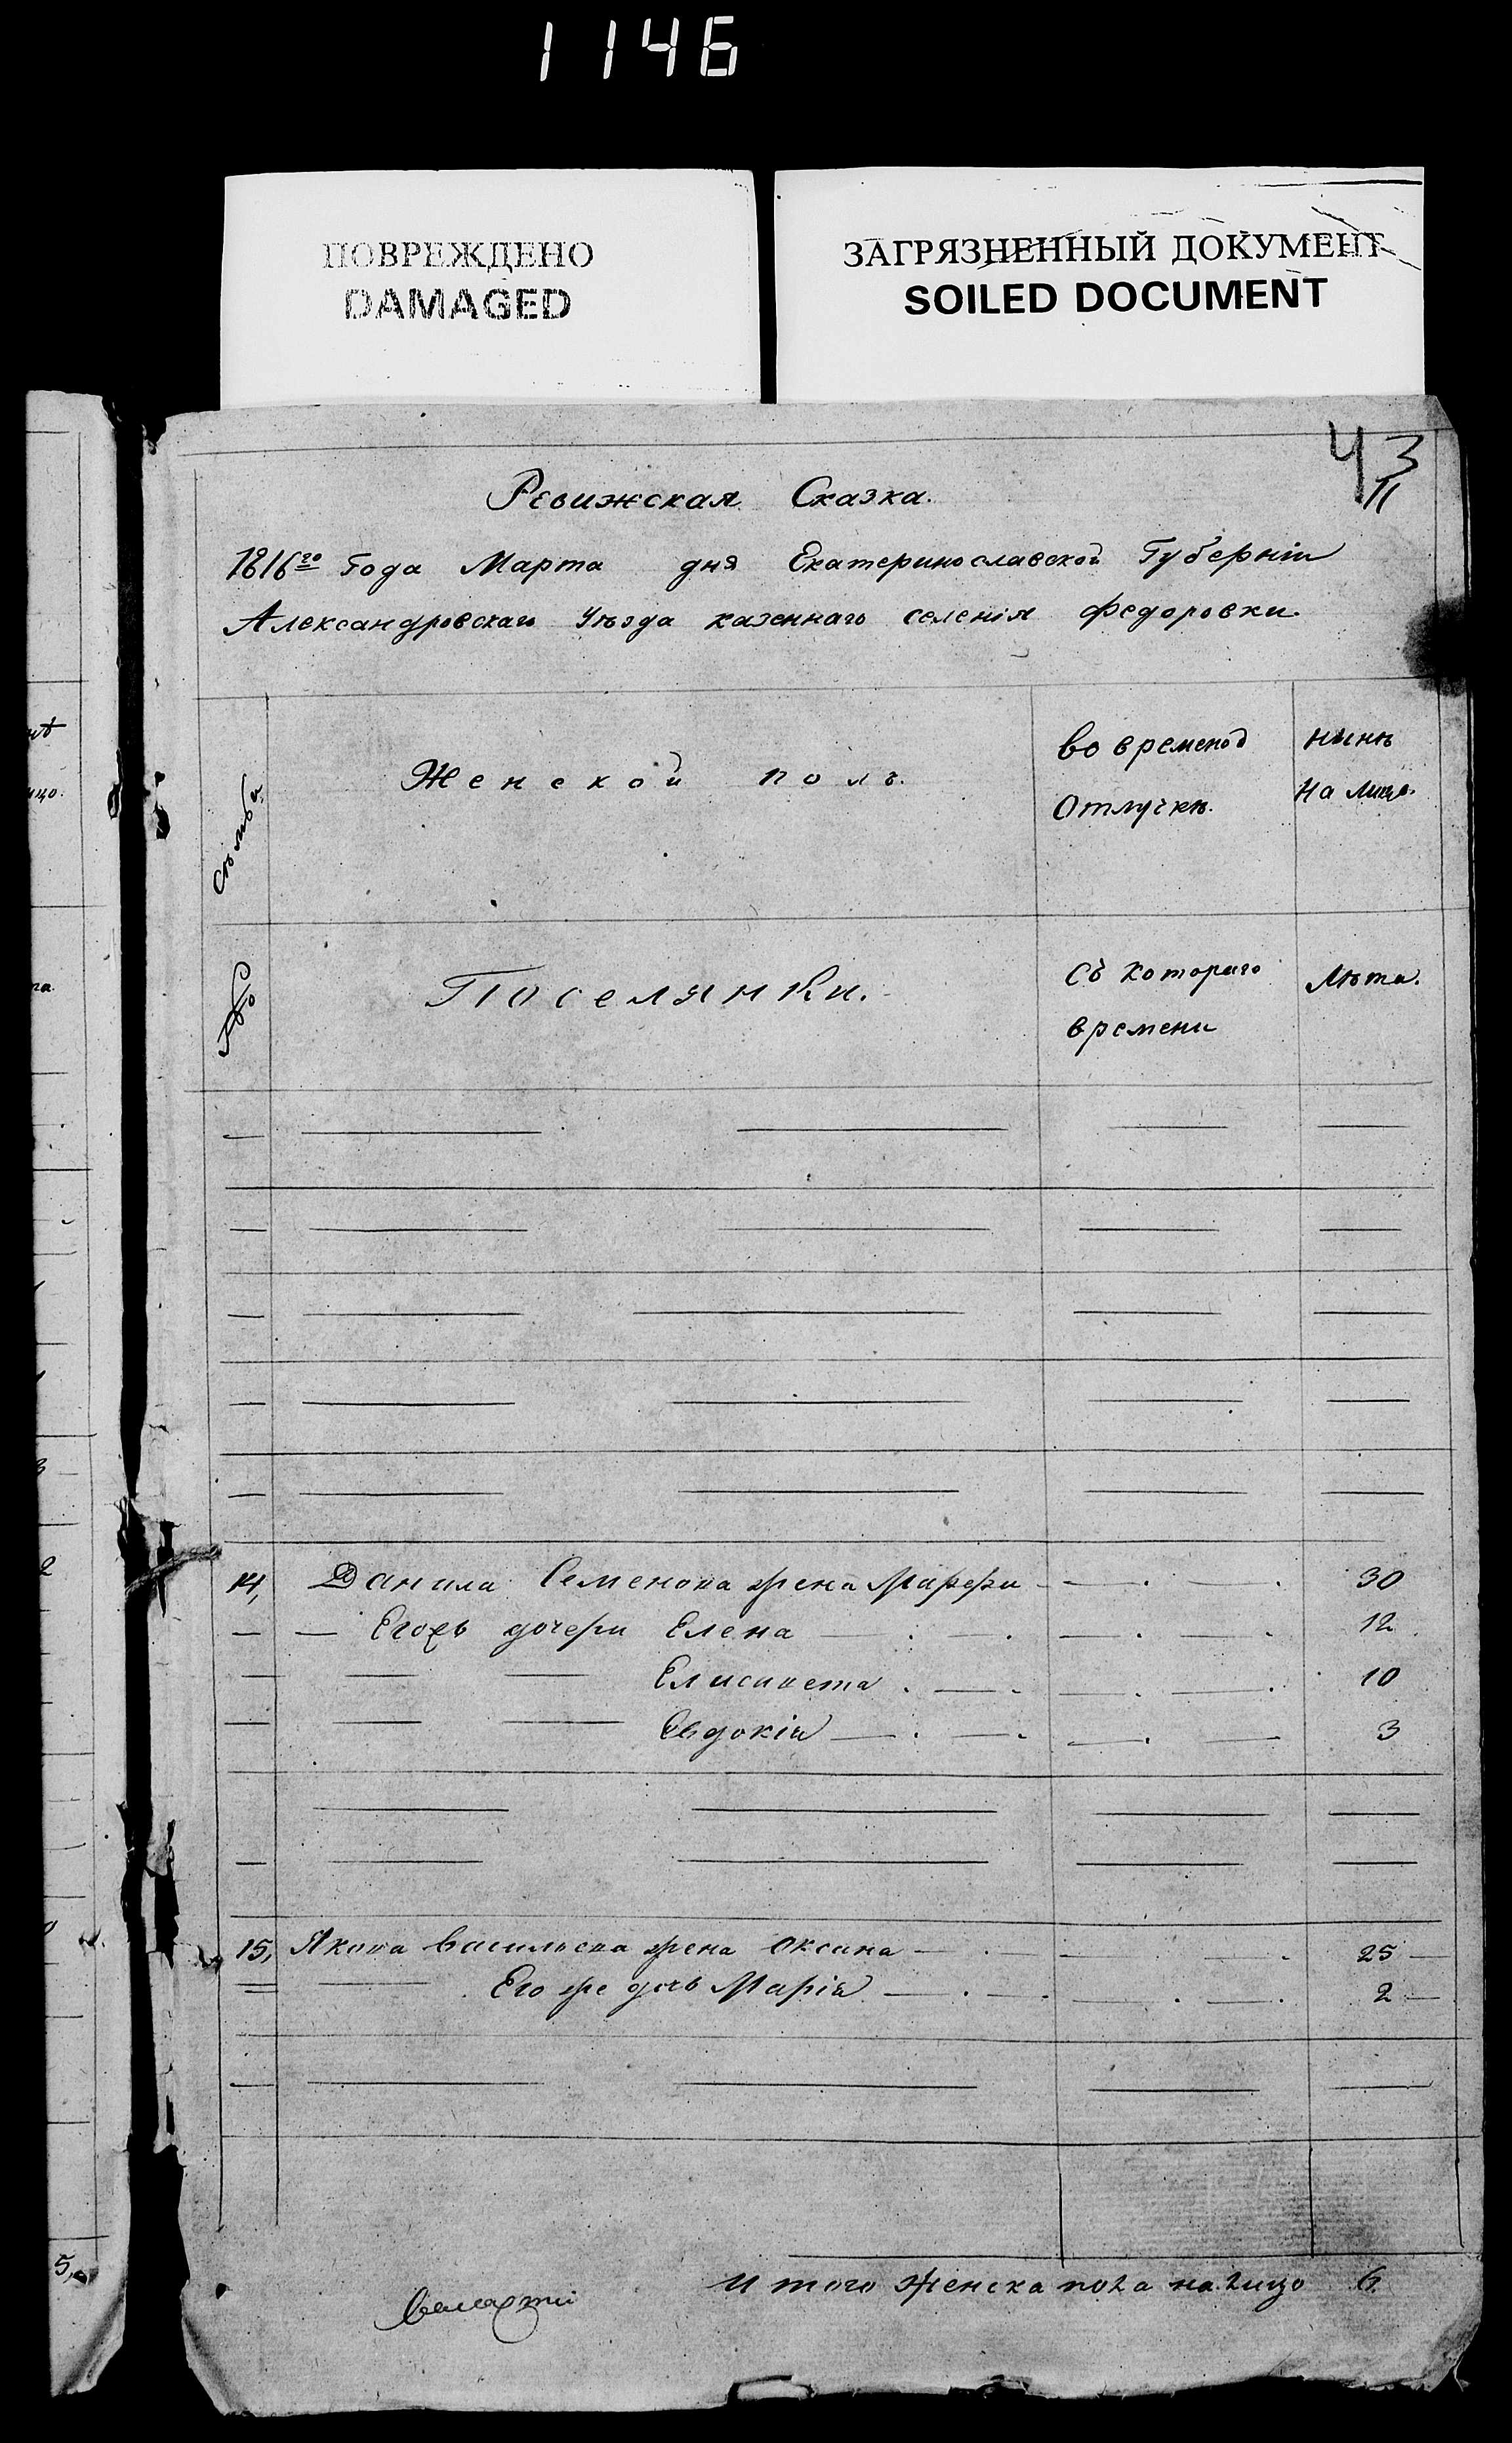 1146
ПОВРЕЖДЕНО
DAMAGED
ЗАГРЯЗНЕННЫЙ ДОКУМЕНТ
SOILED DOCUMENT
43
Ревижская Сказка.
1816го Года Марта дня Екатеринославской Губерніи
Александровскаго Уѣзда казеннаго селенія Федоровки.
Женской полъ.
во времѣной
Отлучкѣ.
нынѣ
На лицо.
Поселянки.
Съ котораго
времени
Лѣта.
14, Данила Семенова жена Марфа 30
Егожъ дочери Елена 12
Елисавета 10
Евдокія 3
15, Якова Васильева жена Оксана 25
Его же дочь Марія 2
Итого женска пола на лицо 6
5,